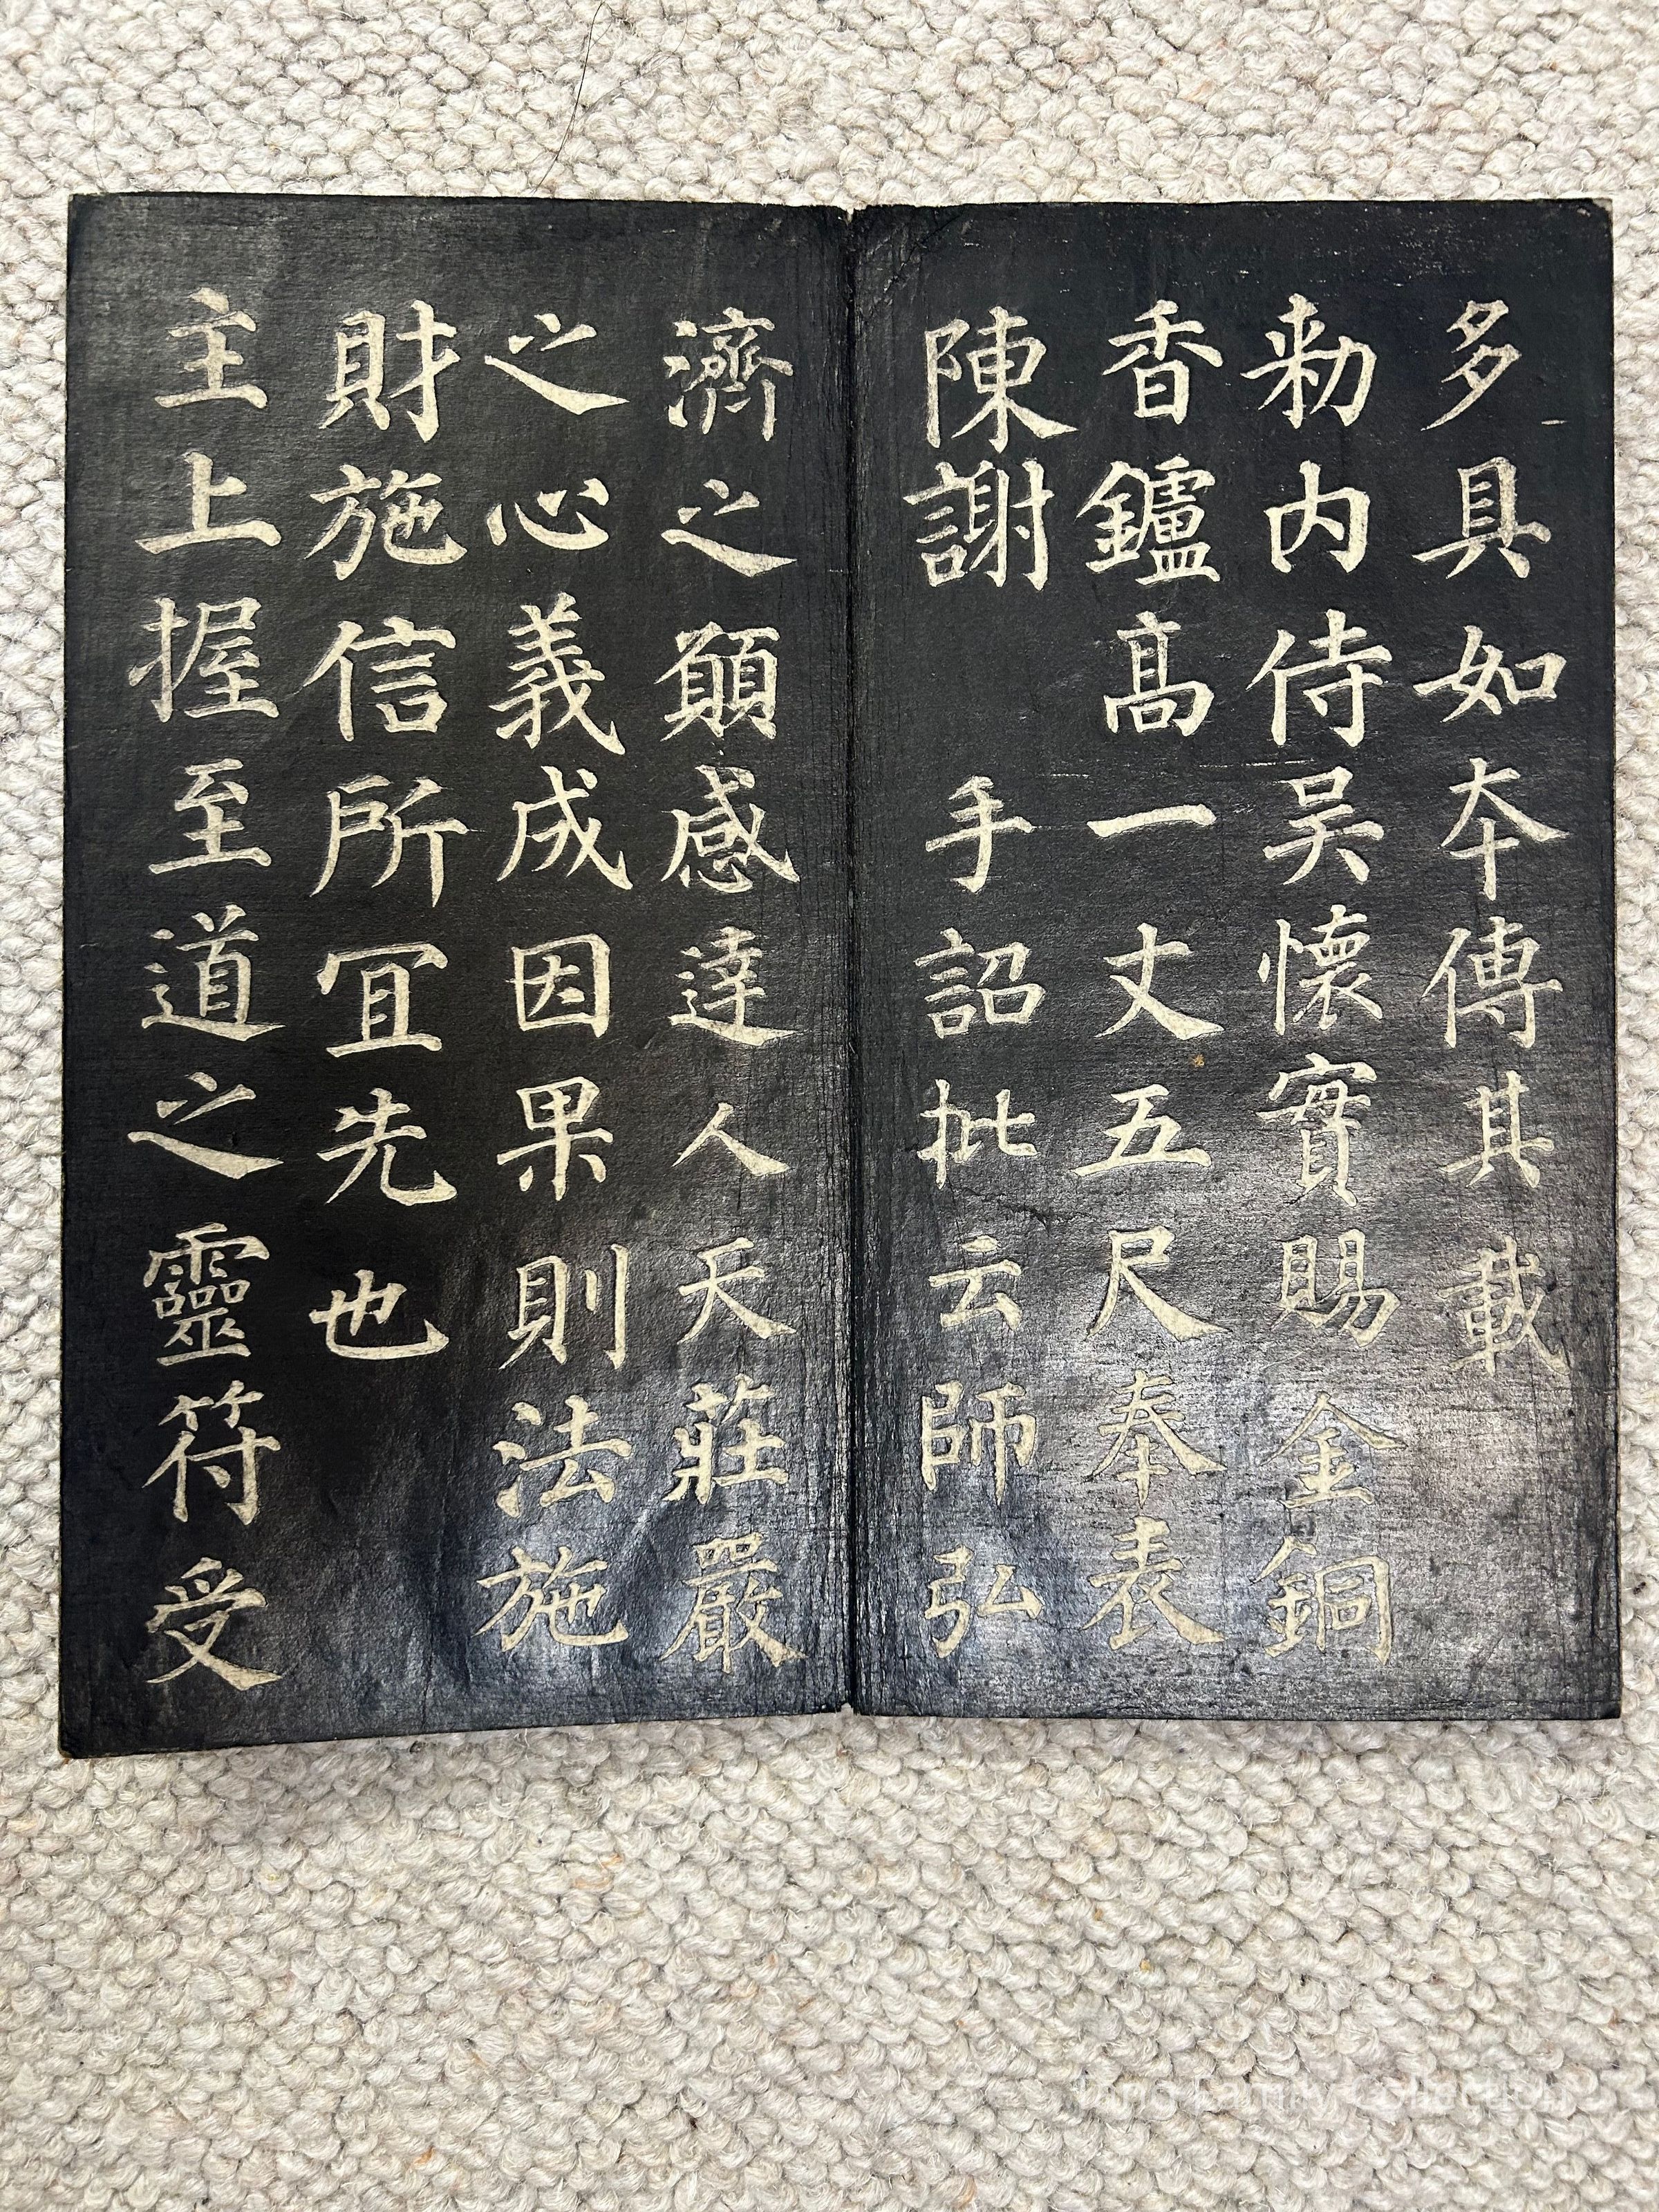 多具如本傳其載
勑内侍吴懷實賜金銅
香鑪髙一丈五尺奉表
陳謝　手詔批云師弘
濟之願感達人天莊嚴
之心義成因果則法施
財施信所冝先也
主上握至道之靈符受
Tang Family Collection